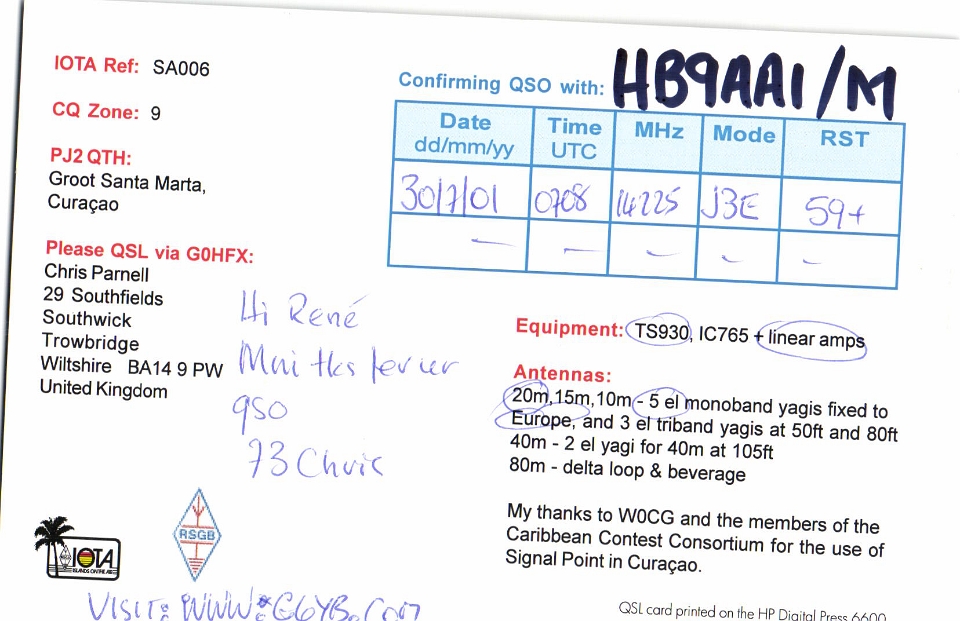 IOTA Ref: SA006
CQ Zone: 9
PJ2 QTH:
Groot Santa Marta,
Curaçao
Please QSL via G0HFX:
Chris Parnell
29 Southfields
Southwick
Trowbridge
Wiltshire BA14 9 PW
United Kingdom
Hi René
Mni tks fer ur
QSO
73 Chris
IOTA
ISLANDS ON THE AIR
RSGB
VISIT: WWW.G6YB.COM
Confirming QSO with: HB9AAI/M
Date dd/mm/yy Time UTC MHz Mode RST
30/7/01 0708 14225 J3E 59+
Equipment: TS930, IC765 + linear amps
Antennas:
20m,15m,10m - 5 el monoband yagis fixed to
Europe, and 3 el triband yagis at 50ft and 80ft
40m - 2 el yagi for 40m at 105ft
80m - delta loop & beverage
My thanks to W0CG and the members of the
Caribbean Contest Consortium for the use of
Signal Point in Curaçao.
QSL card printed on the HP Digital Press 6600